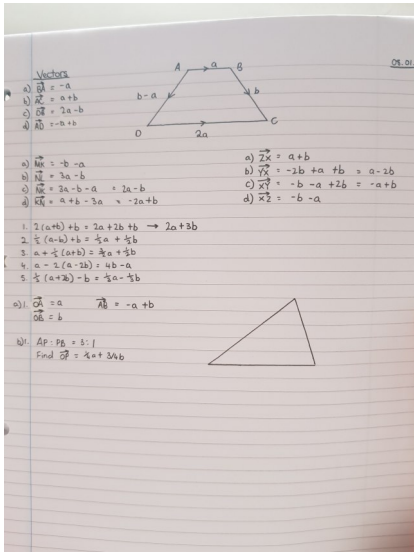 08.01
Vectors
a) BA = -a
b) AC = a+b
c) OB = 2a-b
d) AO = -a+b
A a B
b-a b
O 2a C
a) MK = -b -a
b) NL = 3a-b
c) NK = 3a-b-a = 2a-b
d) KN = a+b-3a = -2a+b
a) ZX = a+b
b) YX = -2b +a +b = a-2b
c) XY = -b -a +2b = -a+b
d) XZ = -b -a
1. 2(a+b)+b = 2a+2b+b → 2a+3b
2. ½(a-b)+b = ½a + ½b
4. a - 2(a-2b) = 4b-a
a).1. OA = a AB = -a +b
OB = b
b)1. AP:PB = 3:1
Find OP = ¼a + 3/4b